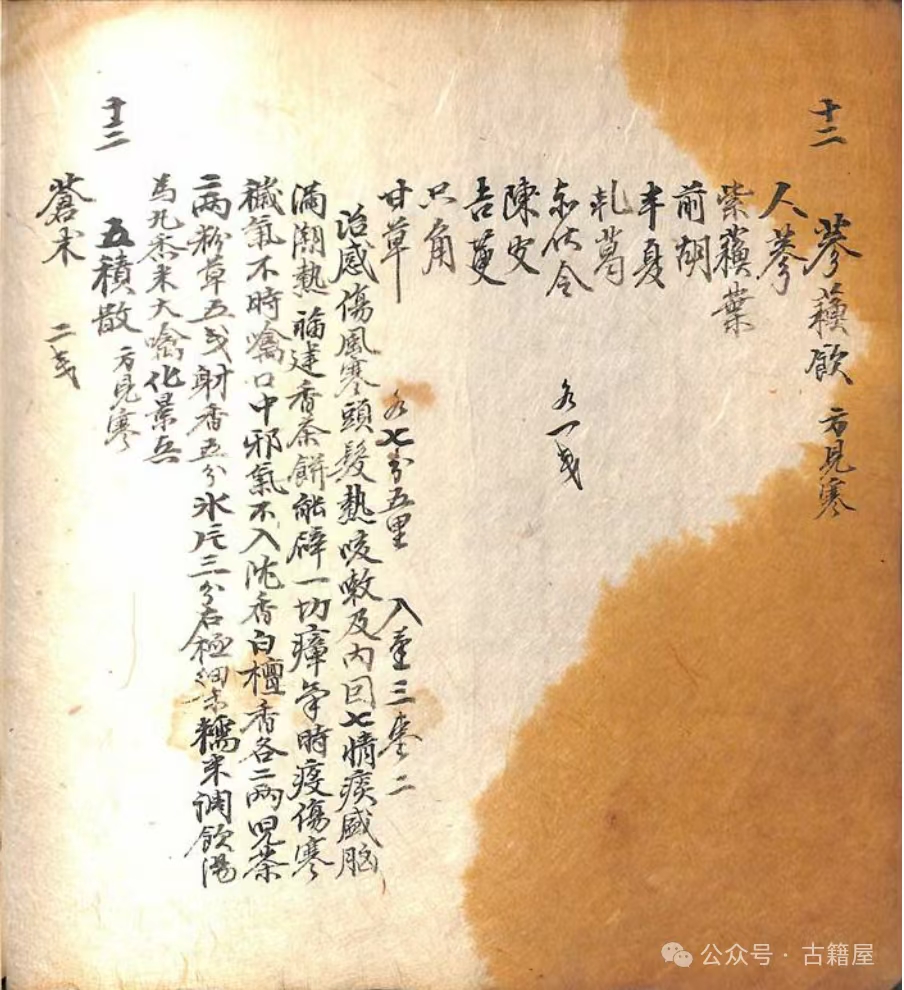 十二
參蘓飲 方見寒
人參
紫蘓葉
前胡
半夏
乹葛
赤伏令 各一戋
陳皮
吉更
只角
甘草 各七分五里 入姜三枣二
治感傷風寒頭髮熱咳嗽及內因七情痰盛胸
滿潮熱 福建香茶餅能辟一切瘴氣時疫傷寒
穢氣不時噙口中邪氣不入沈香白檀香各二兩児茶
二兩粉草五戋射香五分氷片三分右極細末糯米调飲湯
為丸黍米大噙化景兵
十三
五積散 方見寒
蒼术 二戋
公众号·古籍屋